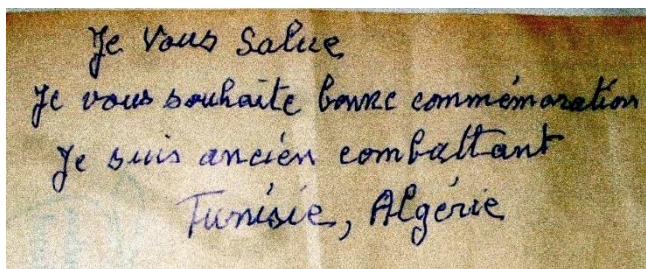 Je Vous Salue
Je vous souhaite bonne commémoration
Je suis ancién combattant
Tunisie, Algérie